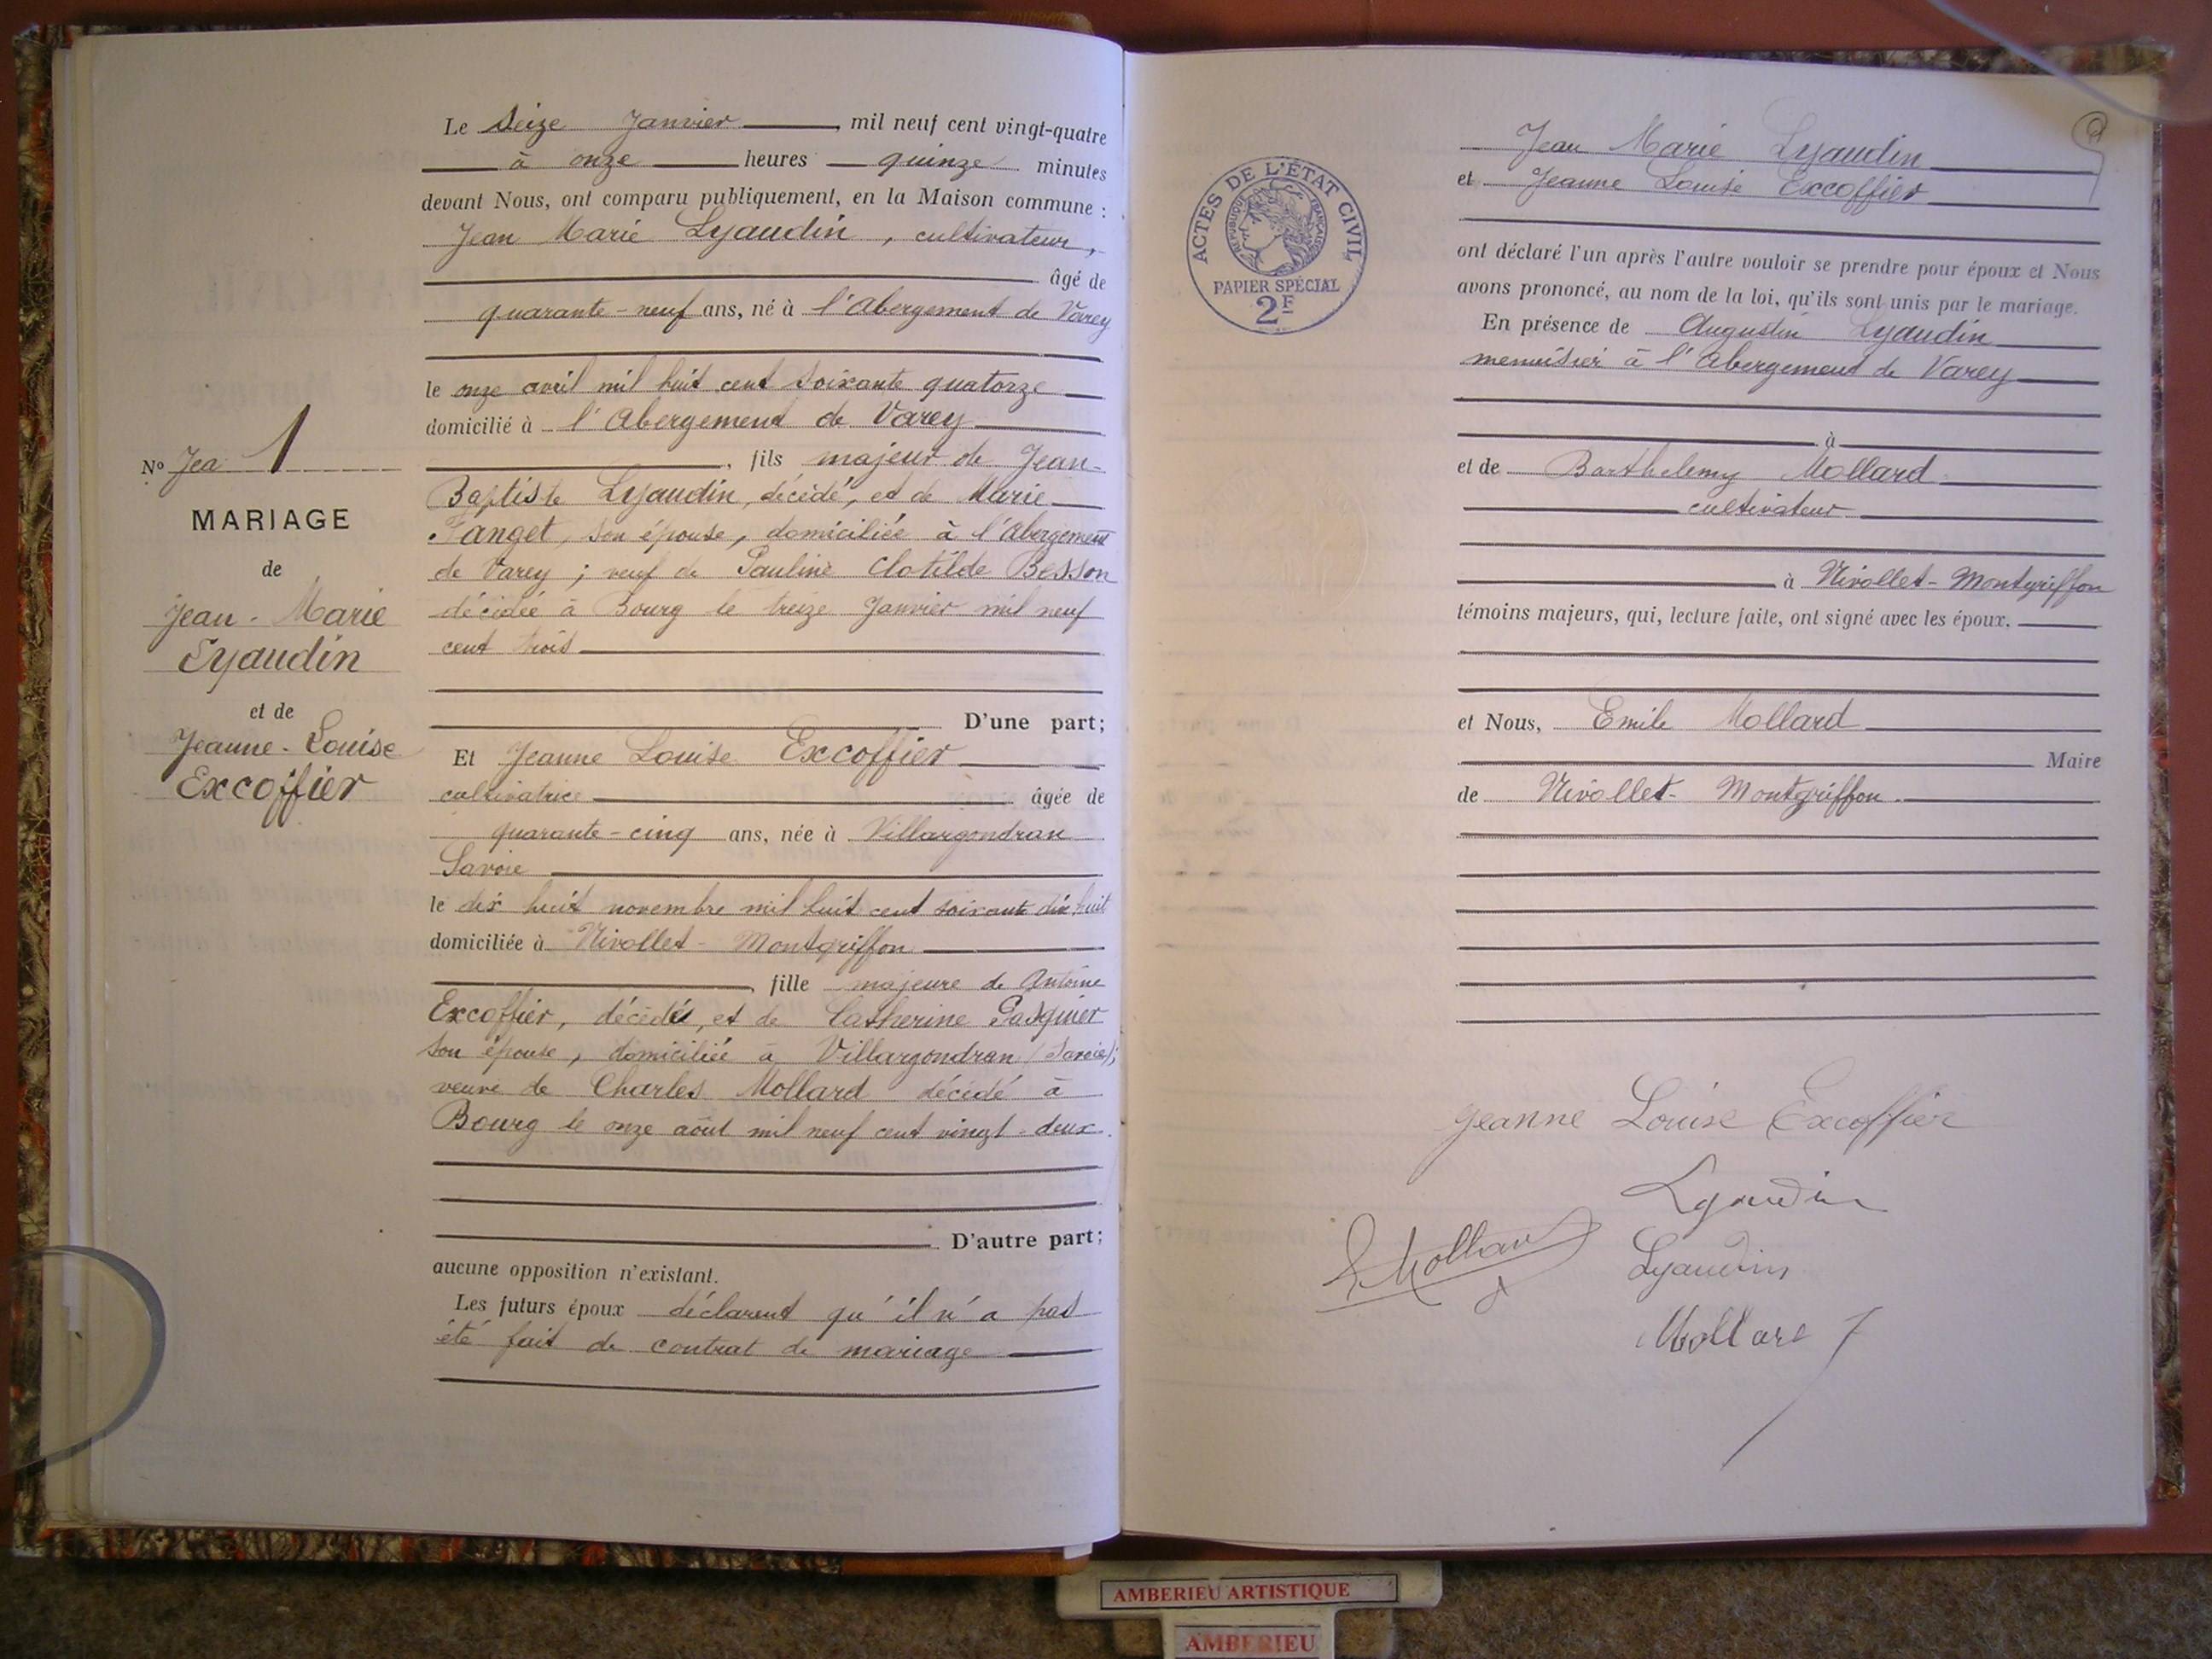 Le Seize Janvier, mil neuf cent vingt-quatre
à onze heures quinze minutes
devant Nous, ont comparu publiquement, en la Maison commune :
Jean Marie Lyaudin, cultivateur,
âgé de
quarante-neuf ans, né à l'Abergement de Varey
le onze avril mil huit cent soixante quatorze
domicilié à l'Abergement de Varey
, fils majeur de Jean-
Baptiste Lyaudin, décédé, et de Marie
Tanget, son épouse, domiciliée à l'Abergement
de Varey ; veuf de Pauline Clotilde Besson
décédée à Bourg le treize Janvier mil neuf
cent trois
D'une part;
Nº Jea 1
MARIAGE
de
Jean-Marie
Lyaudin
et de
Jeanne-Louise
Excoffier
Et Jeanne Louise Excoffier
cultivatrice âgée de
quarante-cinq ans, née à Villargondran
Savoie
le dix huit novembre mil huit cent soixante dix huit
domiciliée à Nivollet-Montgriffon
, fille majeure de Antoine
Excoffier, décédé, et de Catherine Pasquier
son épouse, domiciliée à Villargondran (Savoie);
veuve de Charles Mollard décédé à
Bourg le onze août mil neuf cent vingt-deux.
D'autre part;
aucune opposition n'existant.
Les futurs époux déclarent qu'il n'a pas
été fait de contrat de mariage
ACTES DE L'ÉTAT CIVIL
RÉPUBLIQUE FRANÇAISE
PAPIER SPÉCIAL
2F
Jean Marie Lyaudin
et Jeanne Louise Excoffier
ont déclaré l'un après l'autre vouloir se prendre pour époux et Nous
avons prononcé, au nom de la loi, qu'ils sont unis par le mariage.
En présence de Augustin Lyaudin
menuisier à l'Abergement de Varey
à
et de Barthelemy Mollard
cultivateur
à Nivollet-Montgriffon
témoins majeurs, qui, lecture faite, ont signé avec les époux.
et Nous, Emile Mollard
Maire
de Nivollet-Montgriffon.
Jeanne Louise Excoffier
Lyaudin
E Mollard
Lyaudin
Mollard
AMBERIEU ARTISTIQUE
AMBERIEU